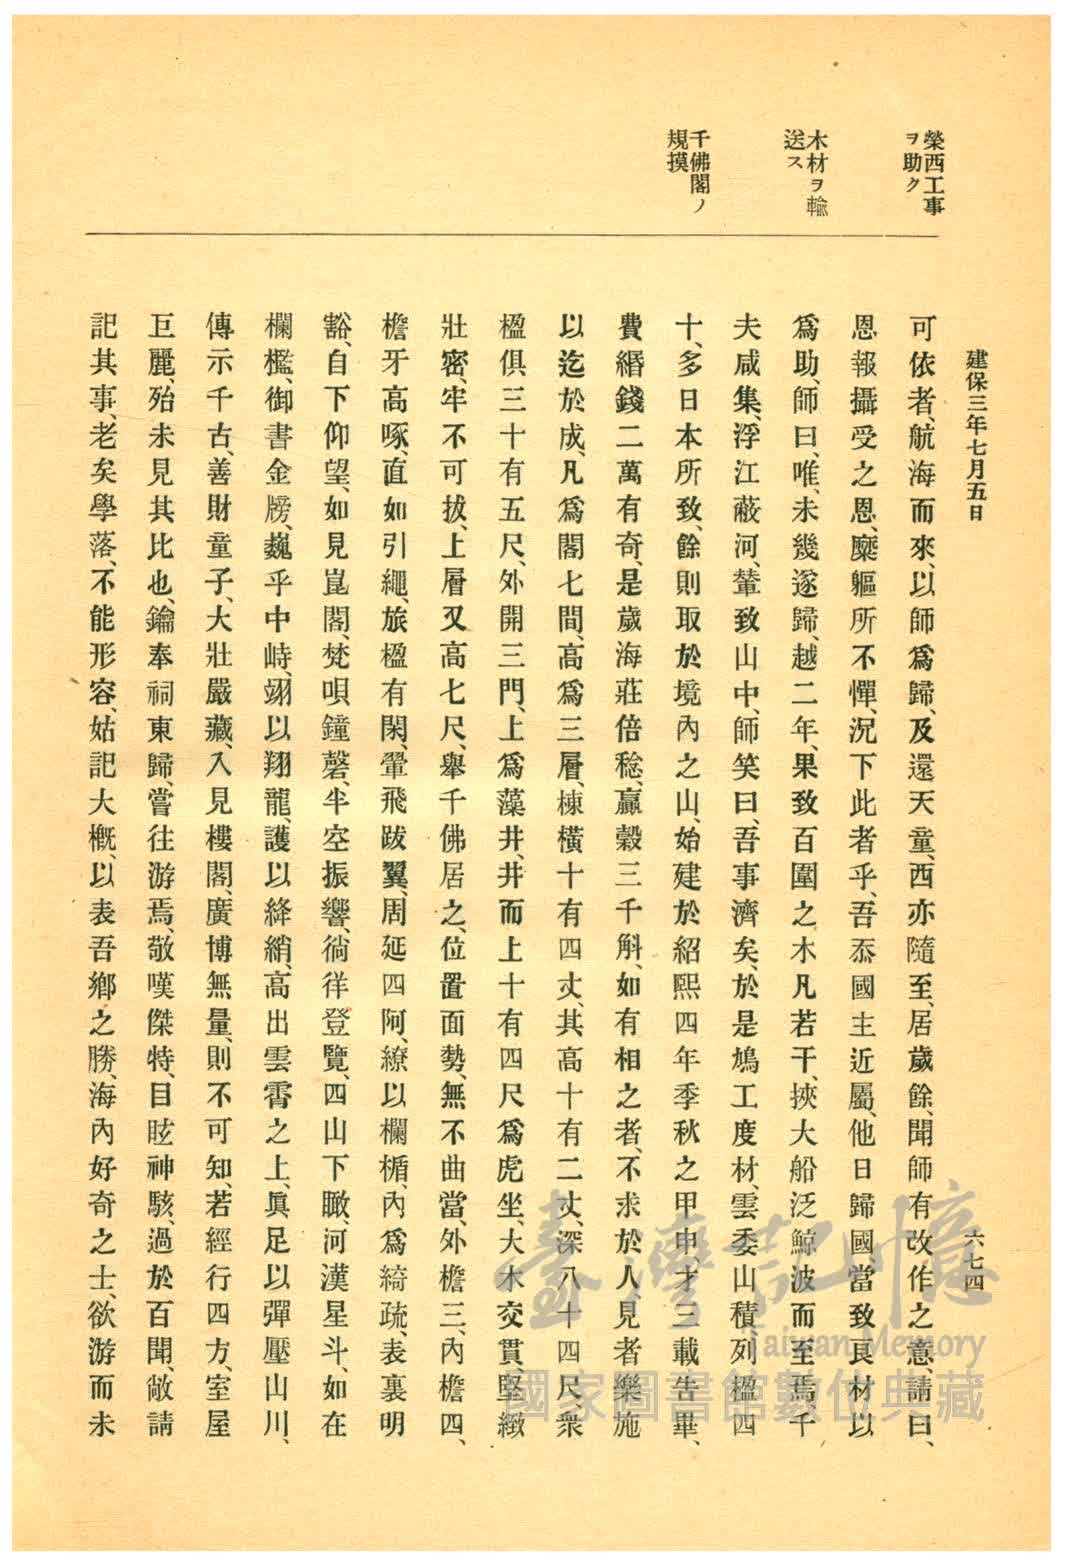 建保三年七月五日
六七四
榮西工事
ヲ助ク
木材ヲ輸
送ス
千佛閣ノ
規摸
可依者、航海而來、以師爲歸、及還天童、西亦隨至、居歲餘、聞師有改作之意、請曰、
恩報攝受之恩、糜軀所不憚、況下此者乎、吾忝國主近屬、他日歸國當致良材以
爲助、師曰、唯、未幾遂歸、越二年、果致百圍之木凡若干、挾大船泛鯨波而至焉、千
夫咸集、浮江蔽河、輦致山中、師笑曰、吾事濟矣、於是鳩工度材、雲委山積列楹四
十、多日本所致、餘則取於境內之山、始建於紹熙四年季秋之甲申、才三載告畢、
費緡錢二萬有奇、是歲海莊倍稔、贏穀三千斛、如有相之者、不求於人見者樂施
以迄於成、凡爲閣七間、高爲三層、棟橫十有四丈、其高十有二丈、深八十四尺、衆
楹俱三十有五尺、外開三門、上爲藻井、井而上十有四尺爲虎坐、大木交貫、堅緻
壯密、牢不可拔、上層又高七尺、舉千佛居之、位置面勢、無不曲當、外檐三、內檐四、
檐牙高啄、直如引繩、旅楹有閑、翬飛跋翼、周延四阿、繚以欄楯、內爲綺疏、表裏明
豁、自下仰望、如見崑閬、梵唄鐘磬、半空振響、徜徉登覽、四山下瞰、河漢星斗、如在
欄檻、御書金牓、巍乎中峙、翊以翔龍、護以絳綃、高出雲霄之上、眞足以彈壓山川、
傳示千古、善財童子、大壯嚴藏、入見樓閣、廣博無量、則不可知、若經行四方、室屋
巨麗、殆未見其比也、鑰奉祠東歸、嘗往游焉、敬嘆傑特、目眩神駭、過於百聞、敞請
記其事、老矣學落、不能形容、姑記大槪、以表吾鄕之勝、海內好奇之士、欲游而未
臺灣記憶
Taiwan Memory
國家圖書館數位典藏